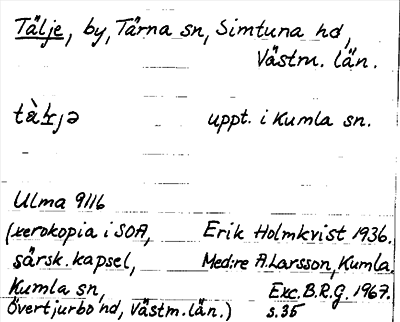 Tälje, by, Tärna sn, Simtuna hd,
Västm. län.
uppt. i Kumla sn.
Ulma 9116
(xerokopia i SOA, Erik Holmkvist 1936.
särsk. kapsel, Med:re A. Larsson, Kumla.
Kumla sn, Exc. B.R.G. 1967.
Övertjurbo hd, Västm. län.) s. 35